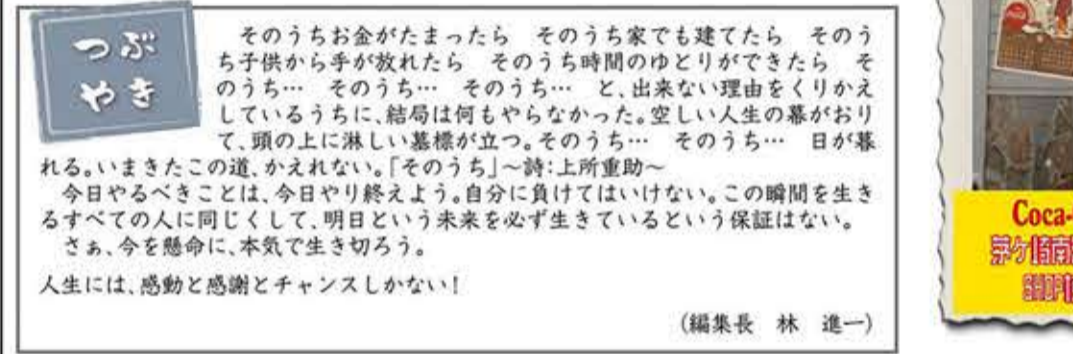 つぶ
やき
そのうちお金がたまったら　そのうち家でも建てたら　そのう
ち子供から手が放れたら　そのうち時間のゆとりができたら　そ
のうち…　そのうち…　そのうち…　と、出来ない理由をくりかえ
しているうちに、結局は何もやらなかった。空しい人生の幕がおり
て、頭の上に淋しい墓標が立つ。そのうち…　そのうち…　日が暮
れる。いまきたこの道、かえれない。「そのうち」～詩：上所重助～
今日やるべきことは、今日やり終えよう。自分に負けてはいけない。この瞬間を生き
るすべての人に同じくして、明日という未来を必ず生きているという保証はない。
さぁ、今を懸命に、本気で生き切ろう。
人生には、感動と感謝とチャンスしかない！
（編集長　林　進一）
Coca-
茅ケ崎南
SHOP